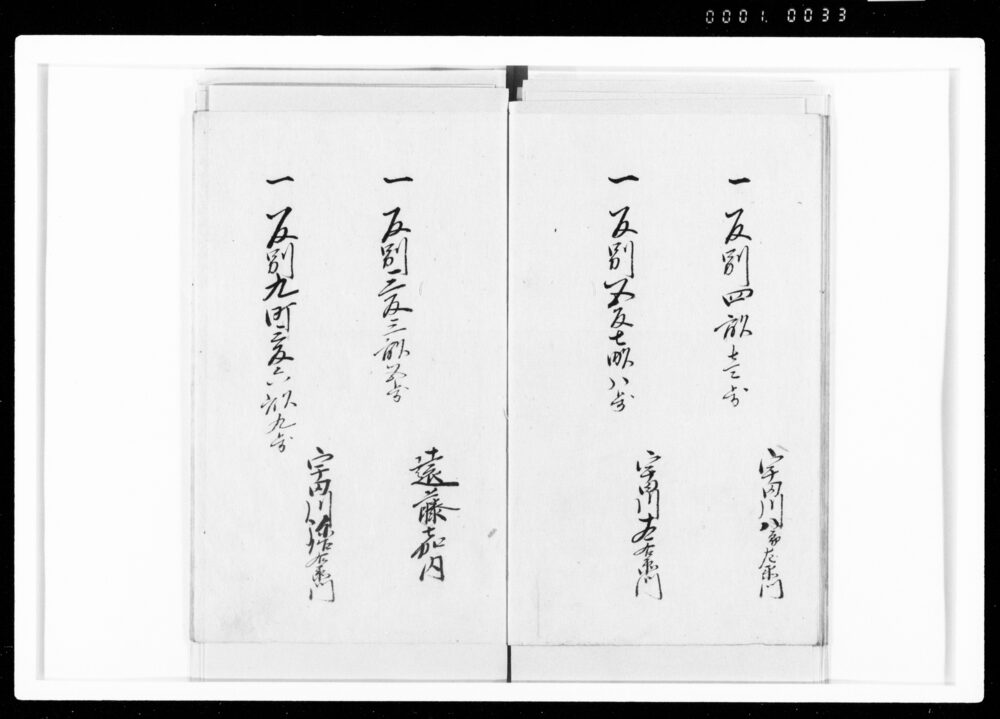 0001. 0033
一 反別四畝十三歩
宇田川八郎左衛門
一 反別五反七畝八歩
宇田川吉右衛門
一 反別三反三畝五歩
遠藤嘉内
一 反別九町三反六畝九歩
宇田川
右衛門